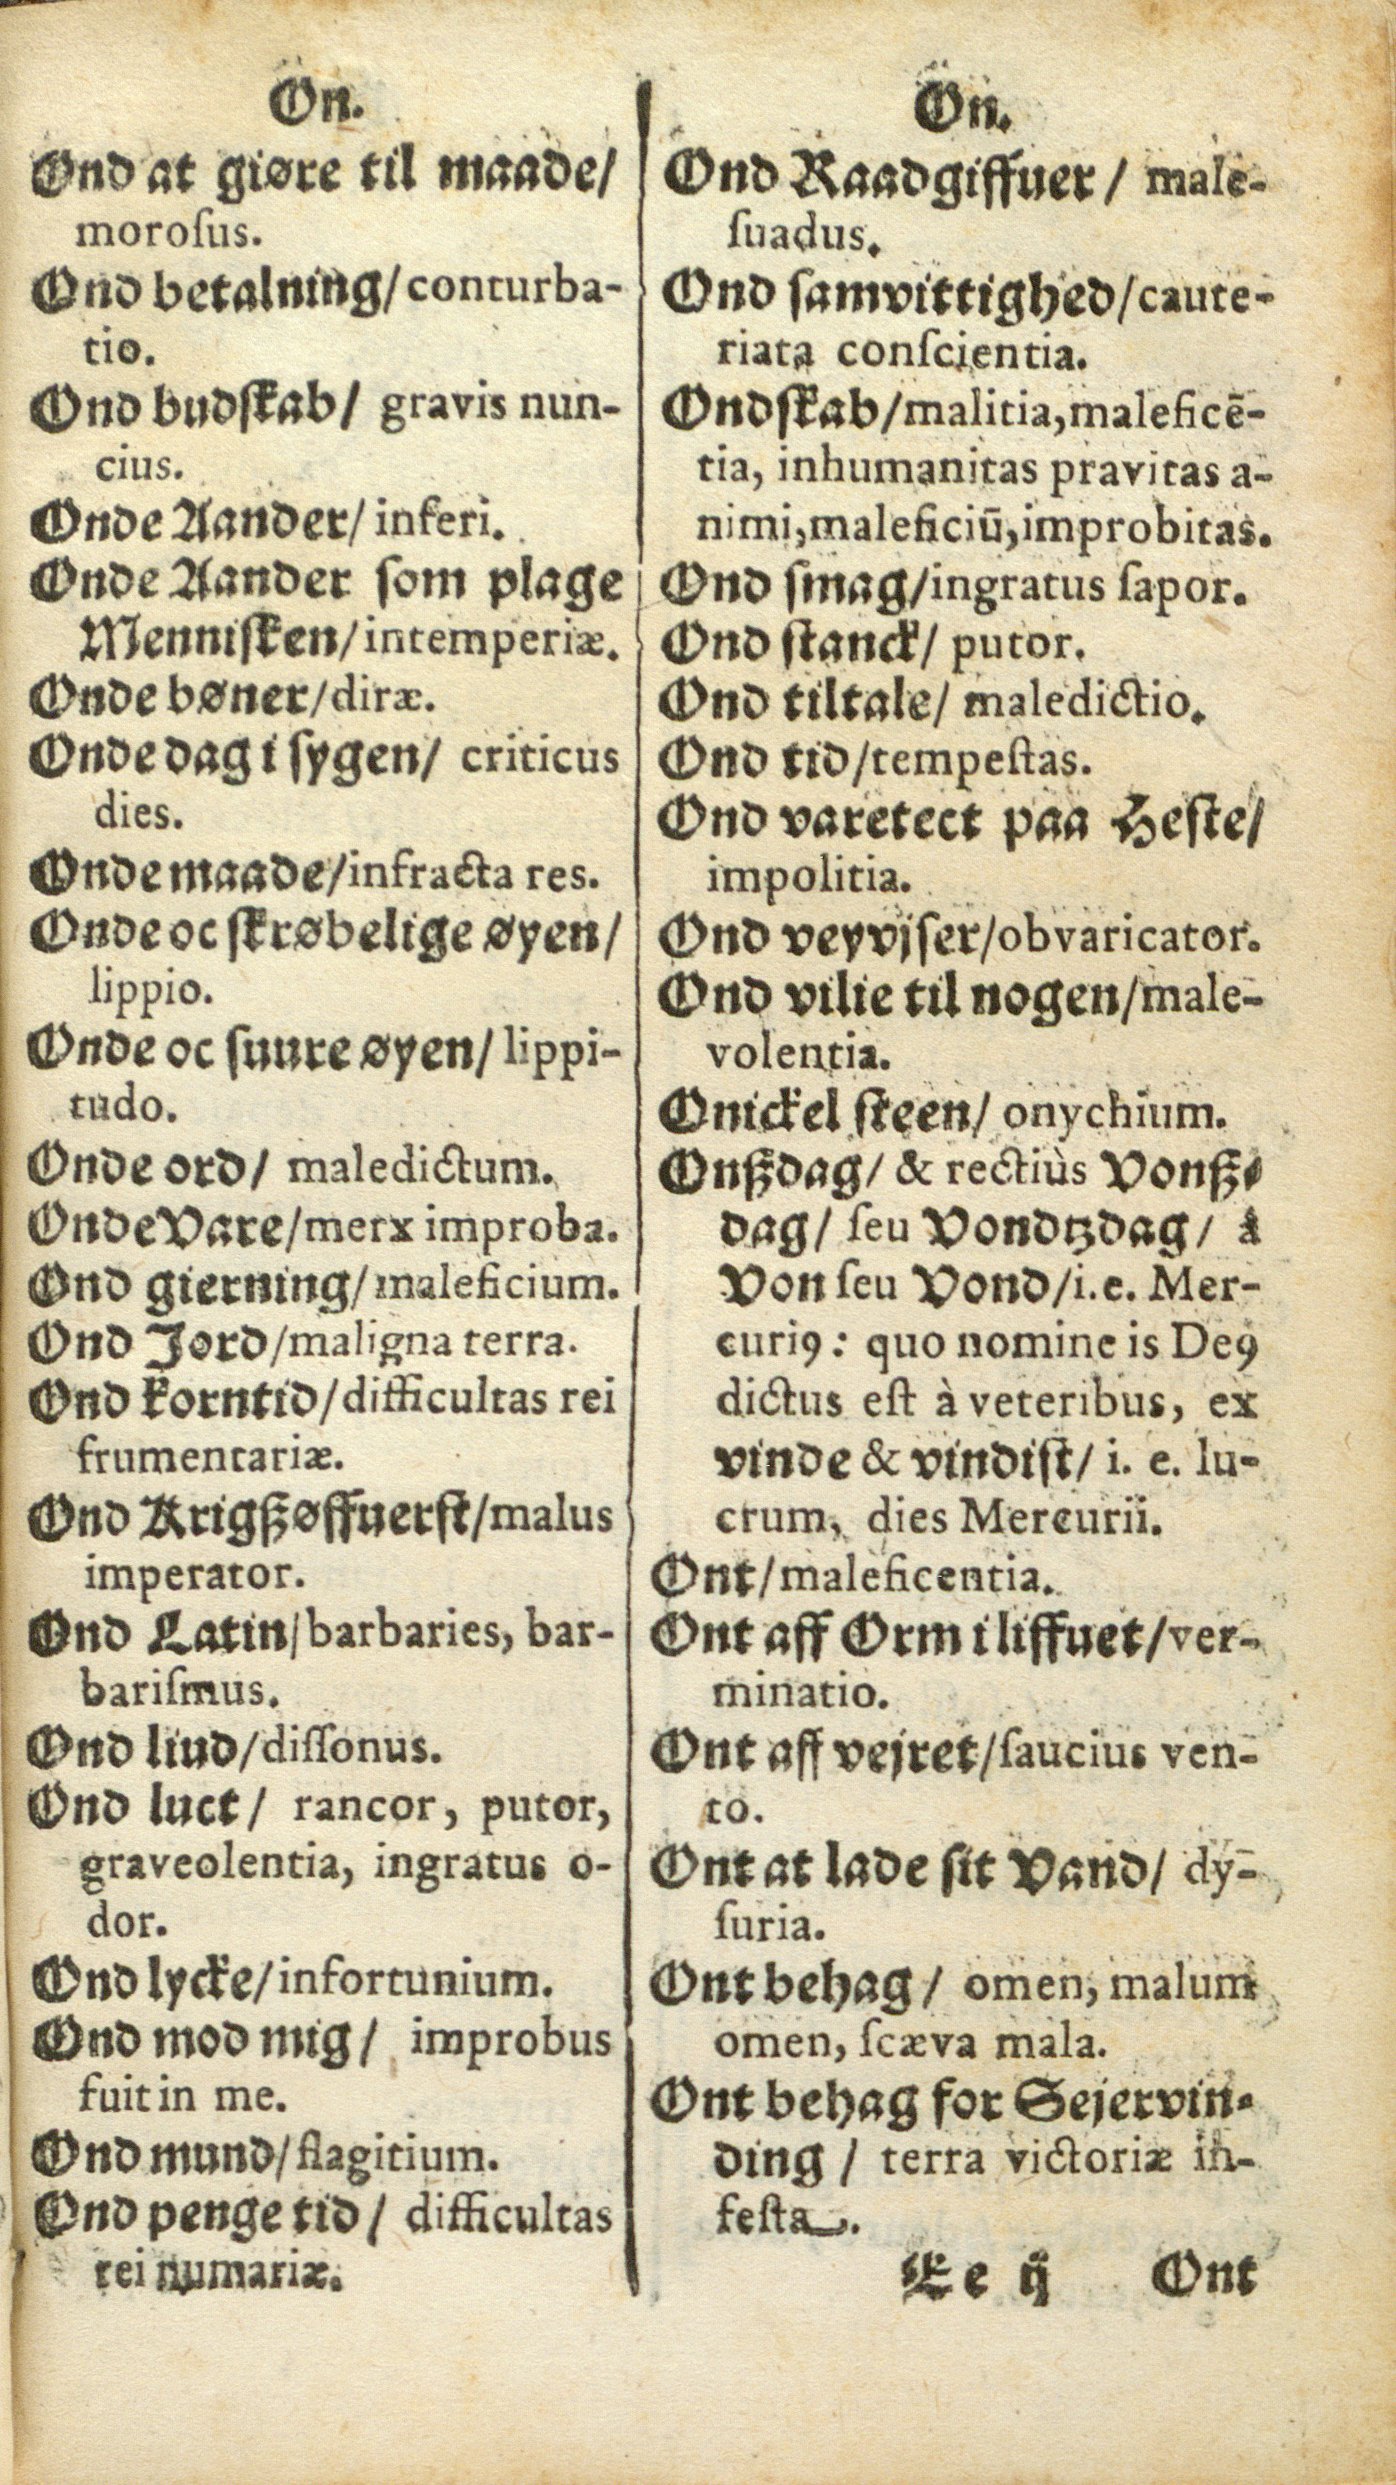 On.
Ond at giøre til maade/
moroſus.
Ond betalning/ conturba-
tio.
Ond budſkab/ gravis nun-
cius.
Onde Aander/ inferi.
Onde Aander ſom plage
Menniſken/ intemperiæ.
Onde bøner/ diræ.
Onde dag i ſygen/ criticus
dies.
Onde maade/ infracta res.
Onde oc ſkrøbelige øyen/
lippio.
Onde oc ſuure øyen/ lippi-
tudo.
Onde ord/ maledictum.
Onde Vare/ merx improba.
Ond gierning/ maleficium.
Ond Jord/ maligna terra.
Ond korntid/ difficultas rei
frumentariæ.
Ond Krigßøffuerſt/ malus
imperator.
Ond Latin/ barbaries, bar-
bariſmus.
Ond liud/ diſſonus.
Ond luct/ rancor, putor,
graveolentia, ingratus o-
dor.
Ond lycke/ infortunium.
Ond mod mig/ improbus
fuit in me.
Ond mund/ flagitium.
Ond penge tid/ difficultas
rei numariæ.
On.
Ond Raadgiffuer/ male-
ſuadus.
Ond ſamvittighed/ caute-
riata conſcientia.
Ondſkab/ malitia, maleficē-
tia, inhumanitas pravitas a-
nimi, maleficiū, improbitas.
Ond ſmag/ ingratus ſapor.
Ond ſtanck/ putor.
Ond tiltale/ maledictio.
Ond tid/ tempeſtas.
Ond varetect paa Heſte/
impolitia.
Ond veyvjſer/ obvaricator.
Ond vilie til nogen/ male-
volentia.
Onickel ſteen/ onychium.
Onßdag/ & rectiùs Vonß-
dag/ ſeu Vondtzdag/ à
Von ſeu Vond/ i. e. Mer-
curiꝯ: quo nomine is Deꝯ
dictus eſt à veteribus, ex
vinde & vindiſt/ i. e. lu-
crum, dies Mercurii.
Ont/ maleficentia.
Ont aff Orm i liffuet/ ver-
minatio.
Ont aff vejret/ ſaucius ven-
to.
Ont at lade ſit Vand/ dy-
ſuria.
Ont behag/ omen, malum
omen, ſcæva mala.
Ont behag for Sejervin-
ding/ terra victoriæ in-
feſta.
Ee ij Ont